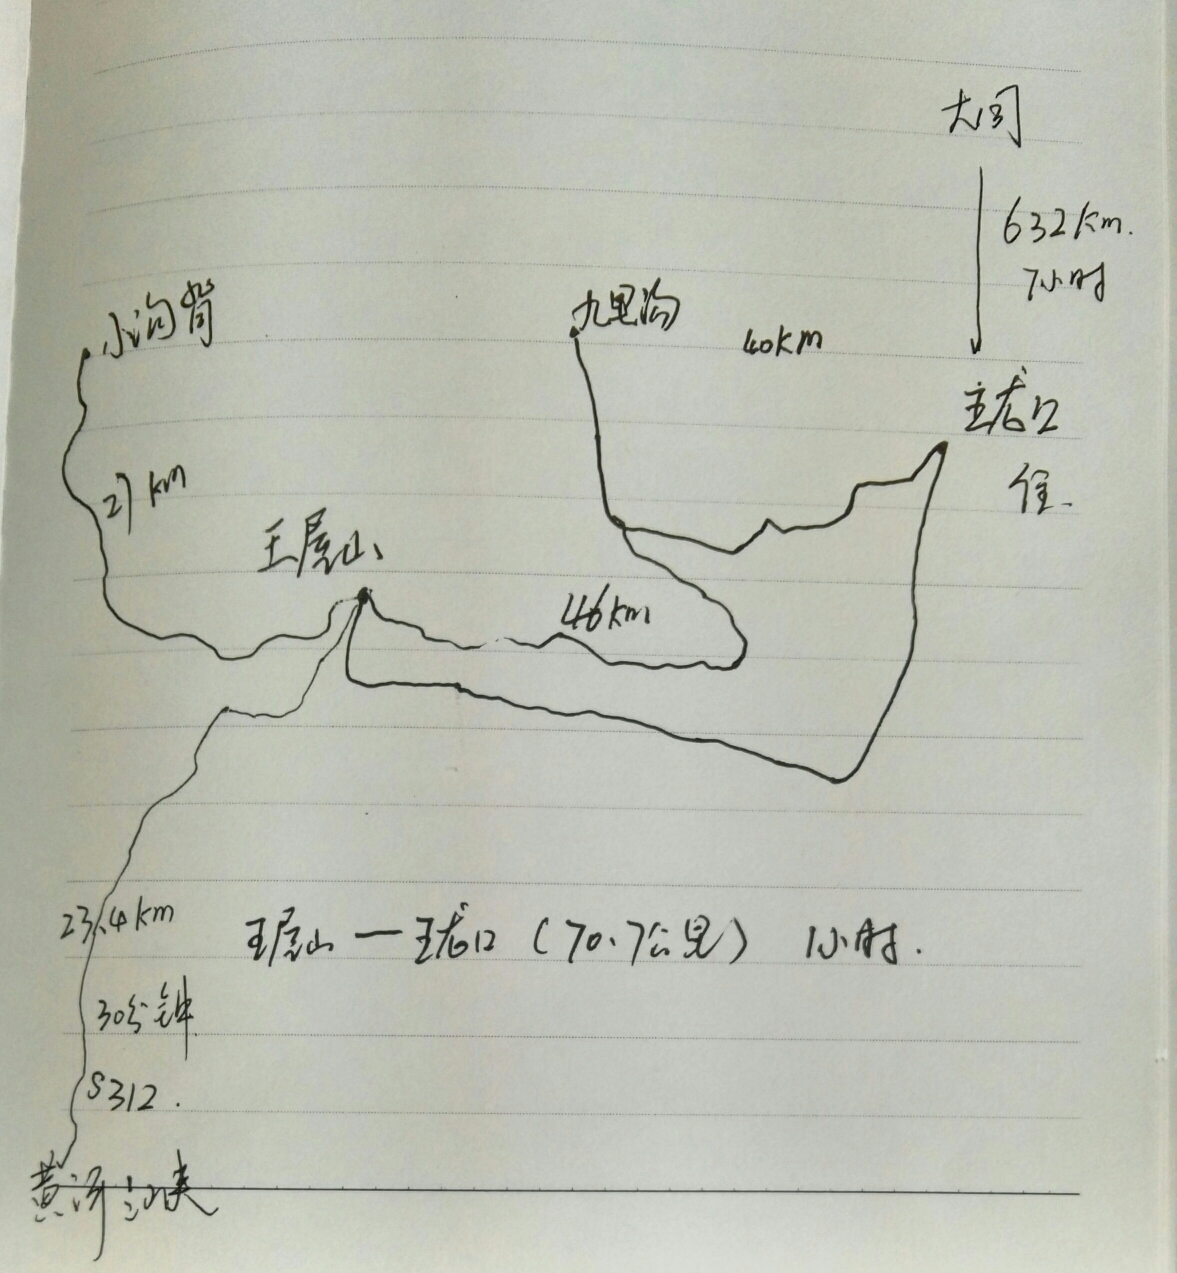 大同
632km.
7小时
小沟背
九里沟
40km
王龙口
住.
27km
王屋山
46km
23.4km
王屋山—王龙口(70.7公里) 1小时.
30分钟
S312.
黄河三峡